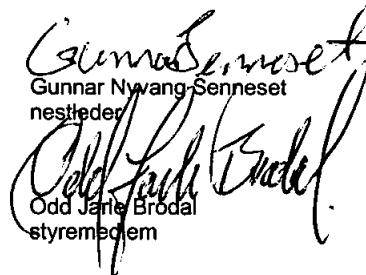 Gunnar Senneset
Gunnar Nyvang Senneset
nestleder
Odd Jarle Brodal
Odd Jarle Brodal
styremedlem